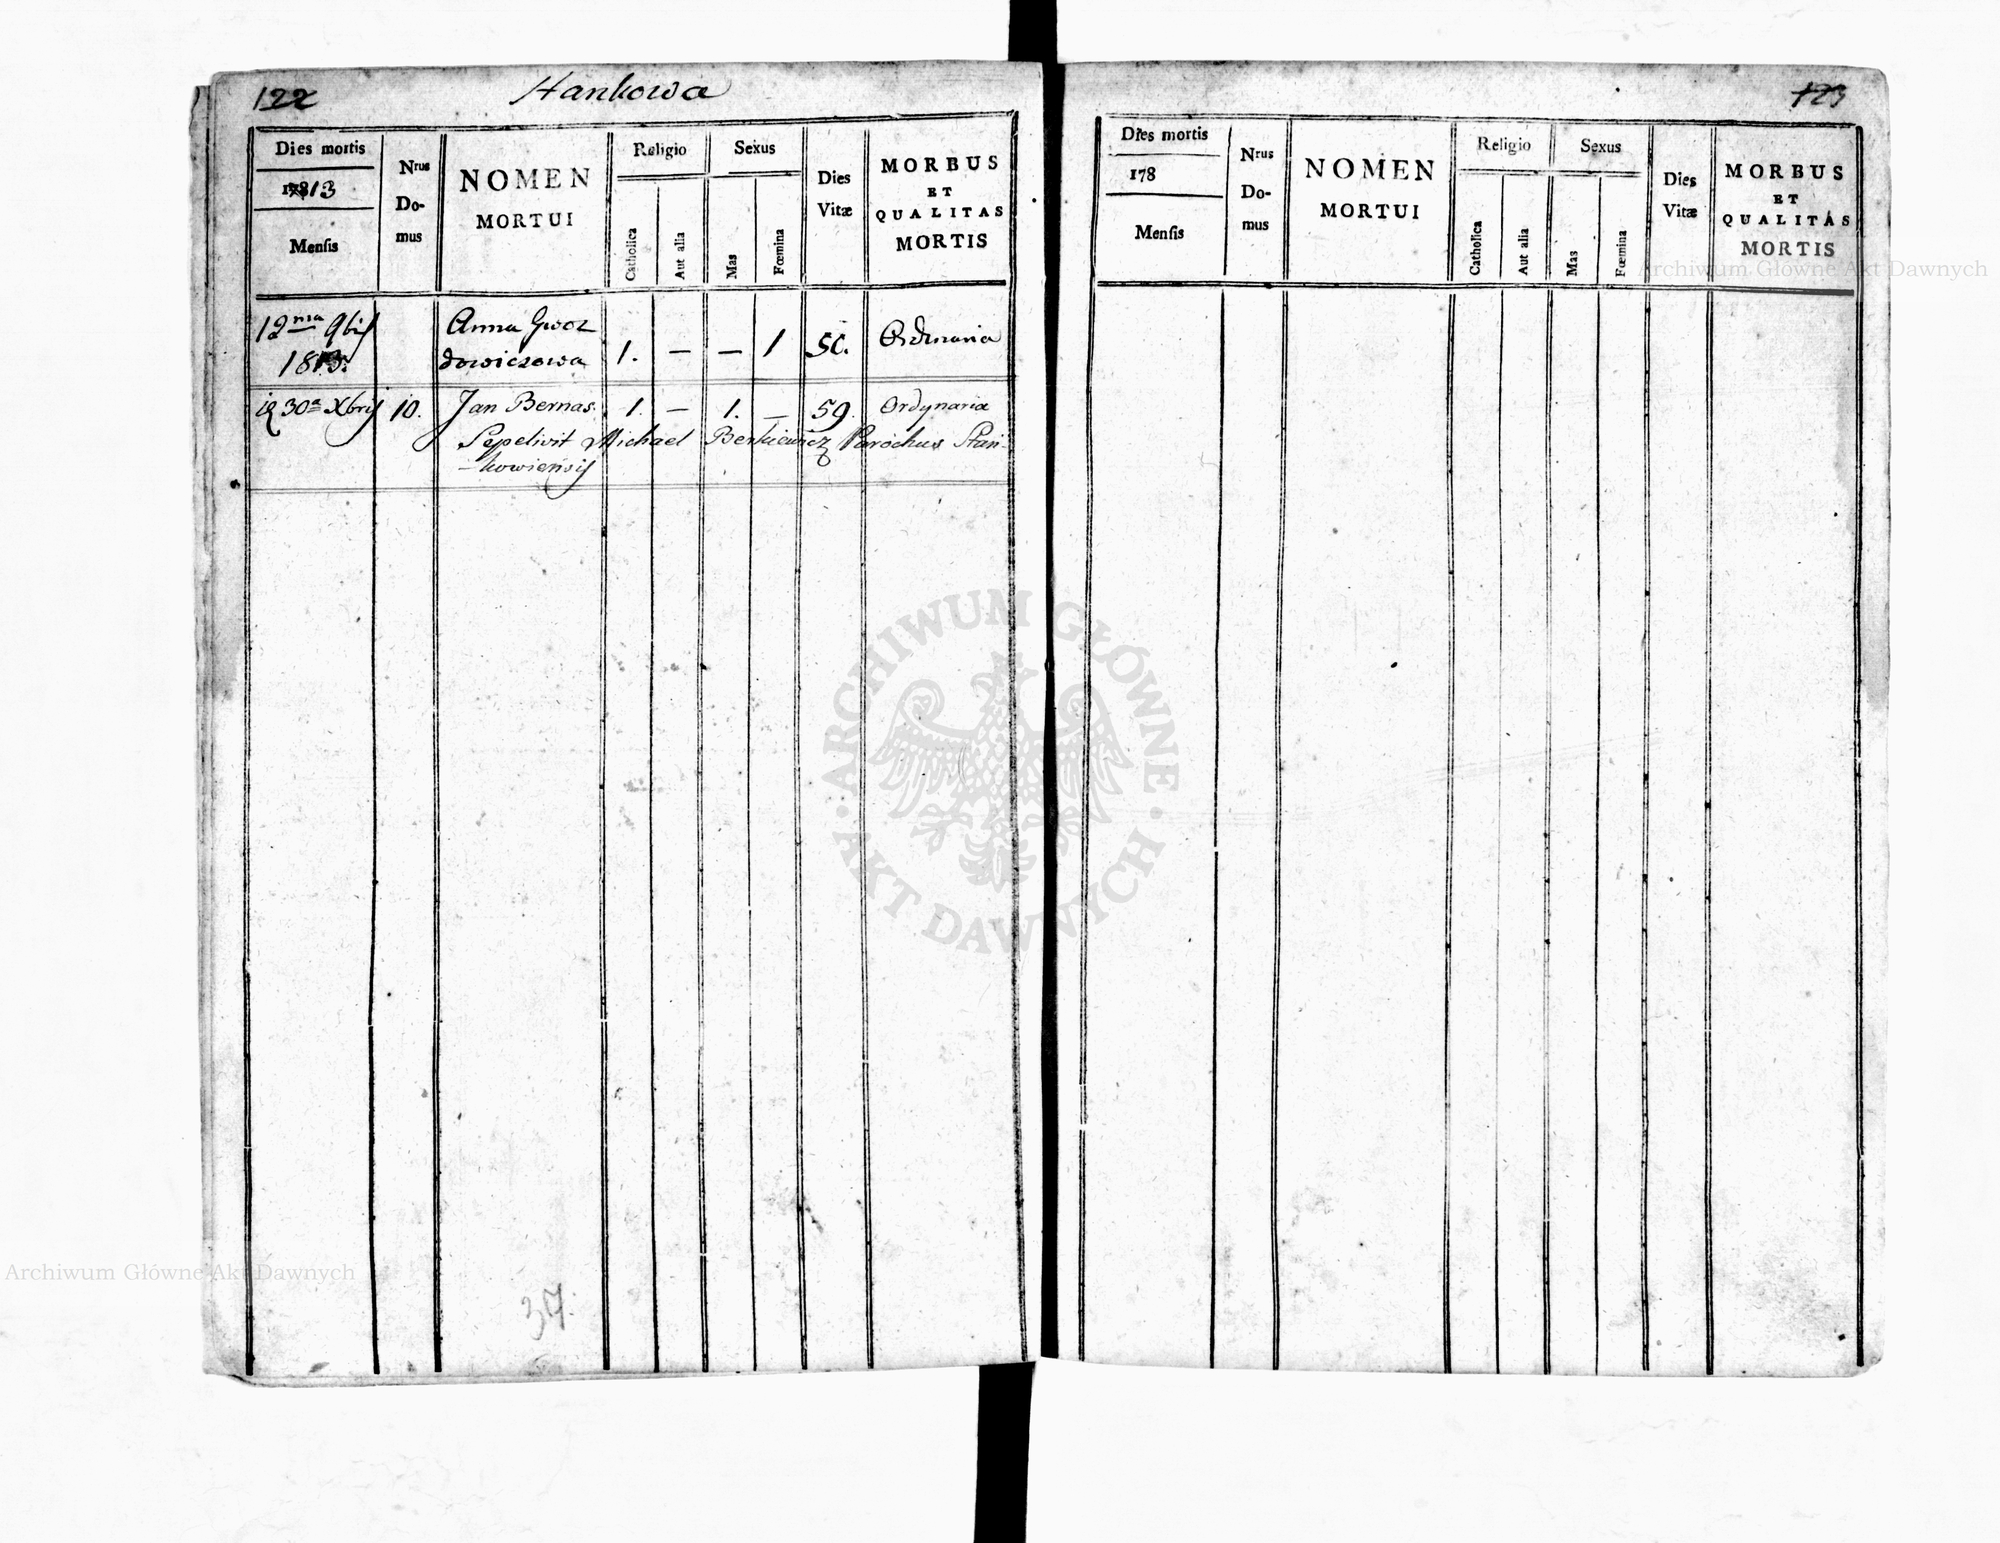 122
Hankowa
Dies mortis
1813
Mensis
Nrus
Do-
mus
NOMEN
MORTUI
Religio
Catholica
Aut alia
Sexus
Mas
Fœmina
Dies
Vitæ
MORBUS
ET
QUALITAS
MORTIS
12ma 9bris
1813.
Anna Gwoz
dowiczowa
1. — — 1 50. Ordinaria
30a Xbris 10. Jan Bernas. 1. — 1. — 59. Ordynaria
Sepelivit Michael Berkiewicz Parochus Stan-
-kowiensis
37.
123
Dies mortis
178
Mensis
Nrus
Do-
mus
NOMEN
MORTUI
Religio
Catholica
Aut alia
Sexus
Mas
Fœmina
Dies
Vitæ
MORBUS
ET
QUALITAS
MORTIS
Archiwum Główne Akt Dawnych
ARCHIWUM GŁÓWNE
AKT DAWNYCH
Archiwum Główne Akt Dawnych